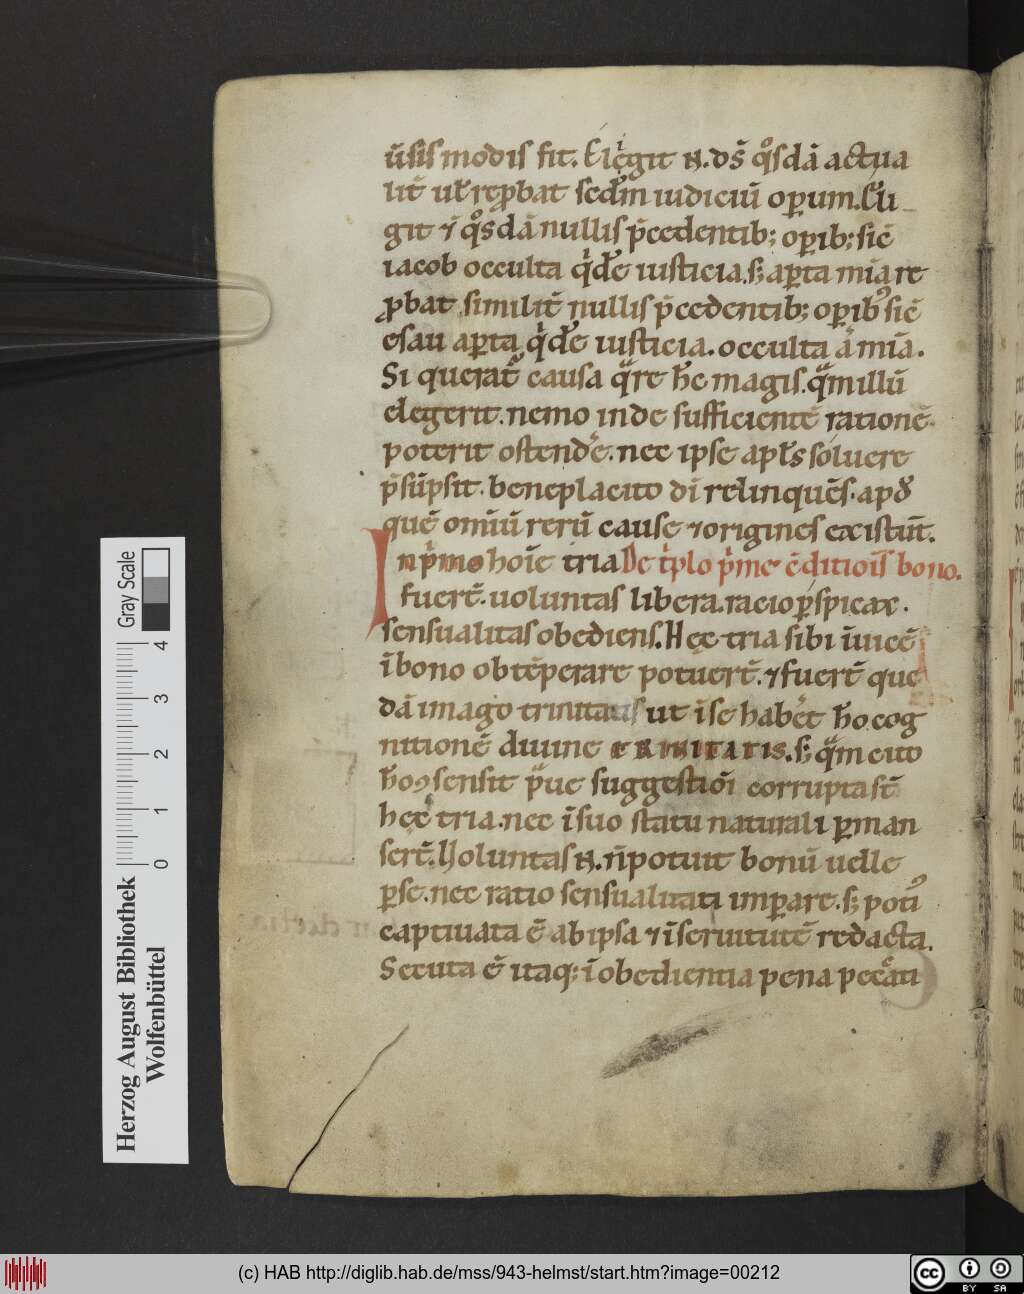 ūsis modis fit. Eligit n̄. ds̄ qosdā actua
lit̄ ul̄ reprobat scdm̄ iudiciū operum. Eli
git ⁊ qosdā nullis p̄cedentib; operib; sic̄
iacob occulta qͥdē iusticia. s; aperta mīa re
probat similit̄ nullis p̄cedentib; operibꝰ sic̄
esau aperta qͥdē iusticia. occulta aͥ mīa.
Si querat̄ causa quare hͦc magis. qᵃm illū
elegerit. nemo inde sufficientē rationē
poterit ostendere. nec ipse apl̄s soluere
p̄sūpsit. beneplacito di relinquēs. apd̄
quē omīū rerū cause ⁊ origines existūt.
In pͥmo hoīe tria De tͥplo pͥme cōditiois̄ bono.
fuert̄. uoluntas libera. racio p̱spicax.
sensualitas obediens. Hec tria sibi īuicē
ī bono obtēperare potuert̄. ⁊ fuert̄ que
dā imago trinitatis ut ī se haberet hͦo cog
nitionē diuine TRINITATIS. s; qᵃm cito
hͦo ꝯsensit praue suggestiōi corrupta st̄
hec tria. nec ī suo statu naturali perman
sert̄. Uoluntas n̄. n̄ potuit bonū uelle
per se. nec ratio sensualitati imperare. s; potiꝰ
captiuata ē ab ipsa ⁊ ī seruitutē redacta.
Secuta ē itaq; īobedientia pena peccati
Herzog August Bibliothek
Wolfenbüttel
Gray Scale
0 1 2 3 4
(c) HAB http://diglib.hab.de/mss/943-helmst/start.htm?image=00212
cc BY SA